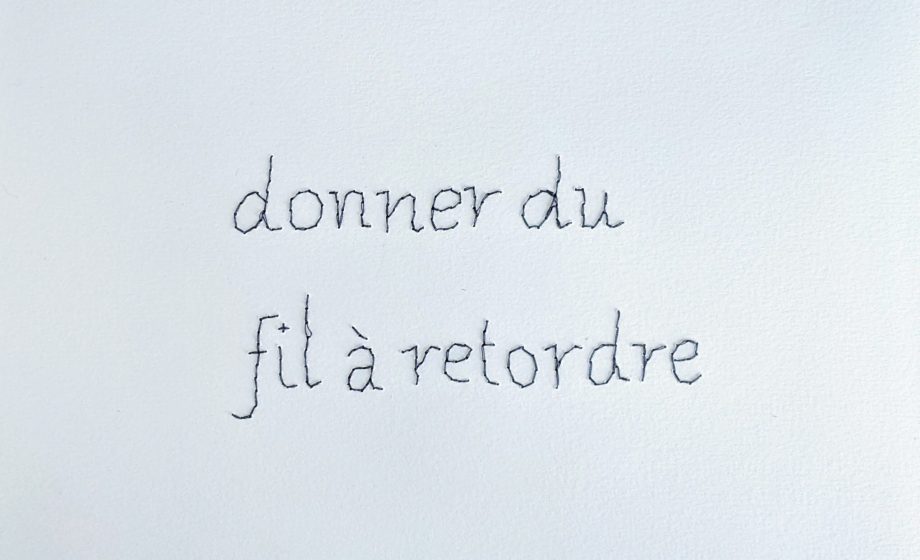 donner du
fil à retordre